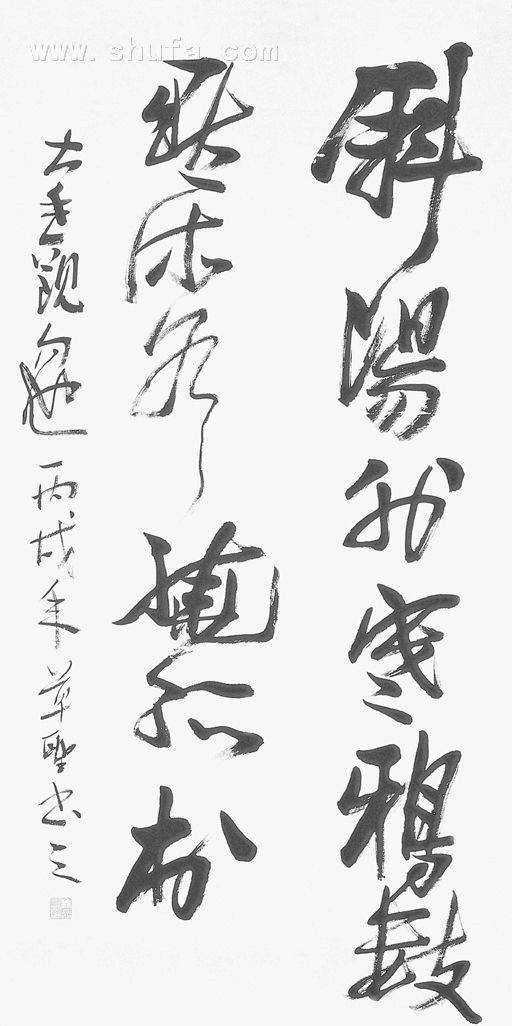 www.shufa.com
斜陽外寒鴉數
點流水繞孤村
丙戌年草聖書之